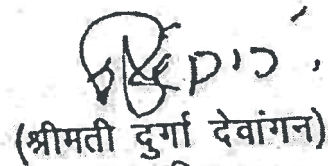 (श्रीमती दुर्गा देवांगन)